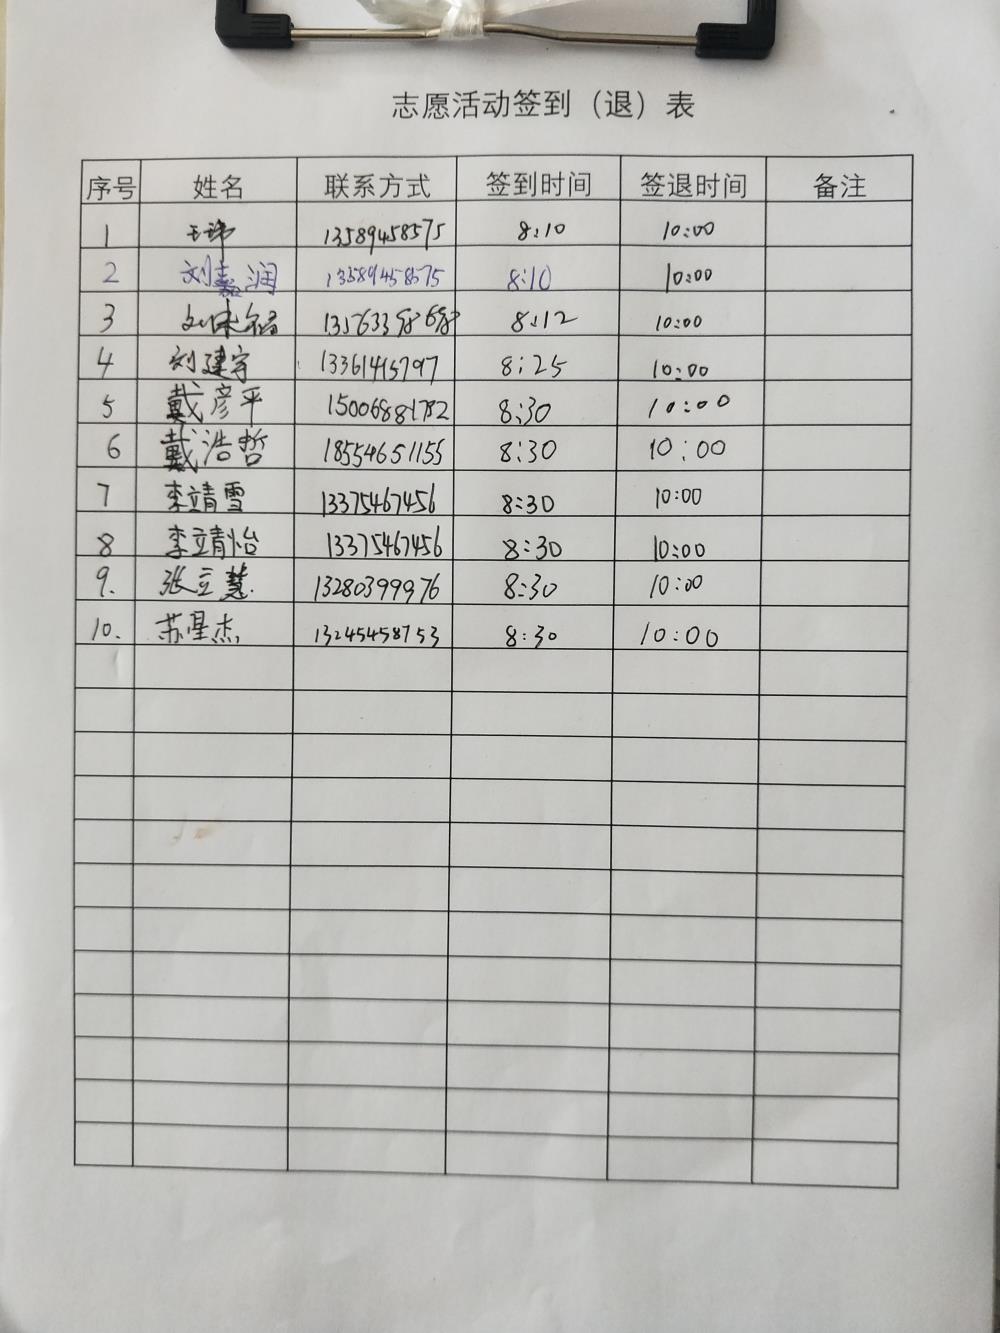 志愿活动签到（退）表
序号 姓名 联系方式 签到时间 签退时间 备注
1 王玮 13589458575 8:10 10:00
2 刘嘉润 13589458575 8:10 10:00
3 刘 8:12 10:00
4 刘建宇 13361415797 8:25 10:00
5 戴彦平 15006881782 8:30 10:00
6 戴浩哲 18554651155 8:30 10:00
7 李靖雪 13375467456 8:30 10:00
8 李靖怡 13375467456 8:30 10:00
9. 张立慧 13280399976 8:30 10:00
10. 苏星杰 13245458753 8:30 10:00